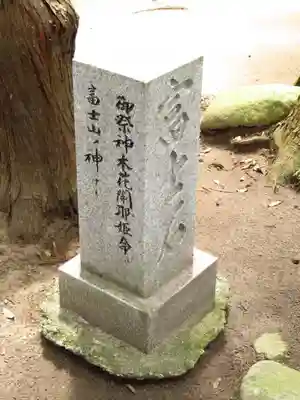 富士石
御祭神木花開耶姫命
富士山ノ神